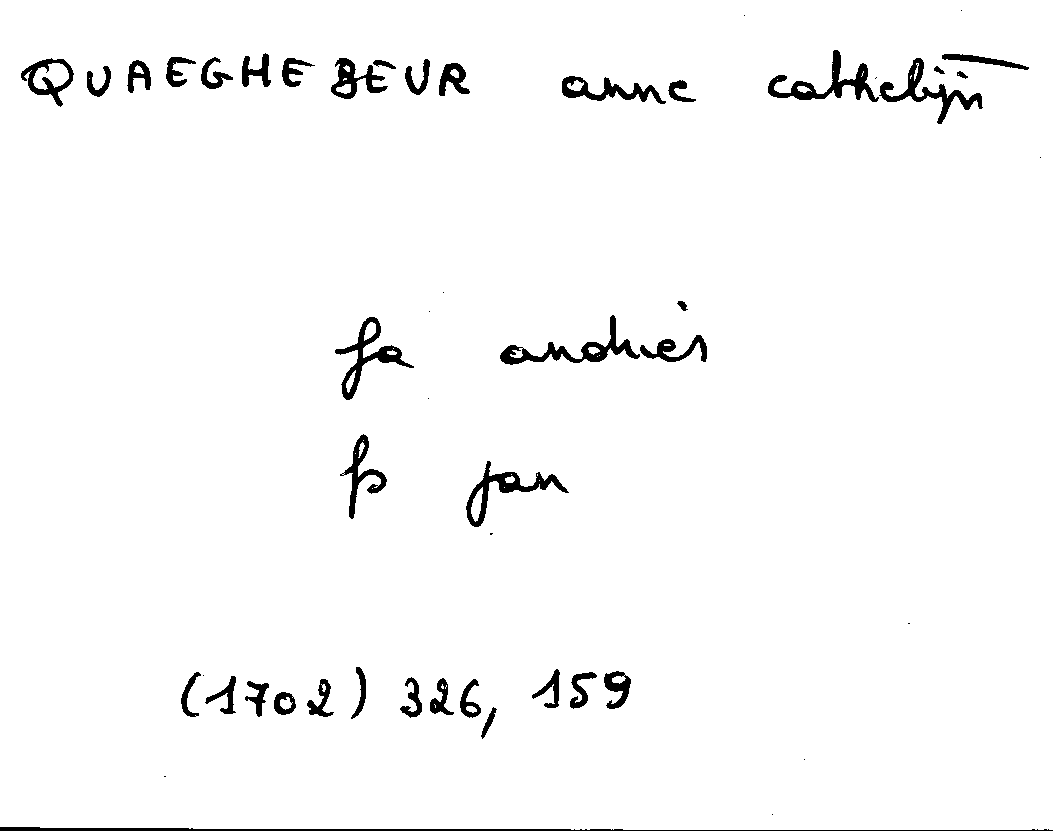 QUAEGHEBEUR anne cathelijn
fa andries
p jan
(1702) 326, 159